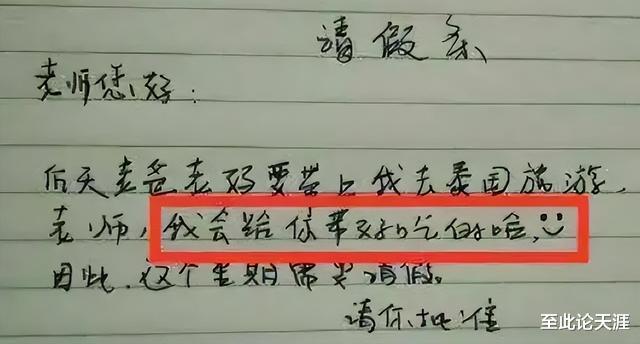 请假条
老师您好：
后天老爸老妈要带上我去泰国旅游，
老师，我会给你带好吃的哈，
因此，这个星期需要请假。
请你批准
至此论天涯